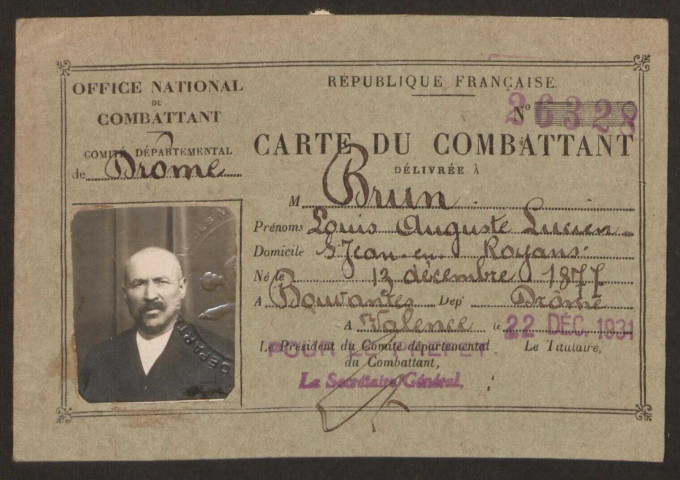 OFFICE NATIONAL
DU
COMBATTANT
COMITÉ DÉPARTEMENTAL
de Drôme
RÉPUBLIQUE FRANÇAISE
No 26328
CARTE DU COMBATTANT
DÉLIVRÉE À
M Brun
Prénoms Louis Auguste Lucien
Domicile St Jean-en-Royans
Né le 13 décembre 1877
A Bouvantes Dept Drôme
A Valence le 22 DÉC. 1931
Le Président du Comité départemental
du Combattant,
Le Titulaire,
POUR LE PRÉFET
Le Secrétaire Général,
DEPART